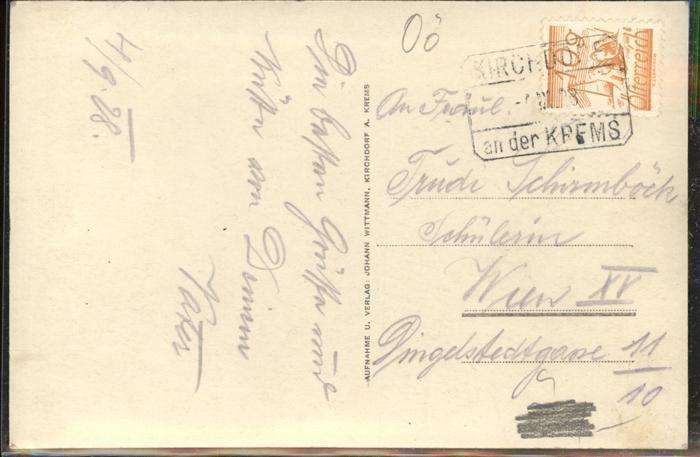 4/9.28.
Die besten Grüße und
Küsse von Deinem
Vater
AUFNAHME U. VERLAG: JOHANN WITTMANN, KIRCHDORF A. KREMS
OÖ
10g
Österreich
KIRCHDORF
an der KREMS
An Fräul.
Trude Schirmböck
Schülerin
Wien XV
Dingelstedtgasse 11
10